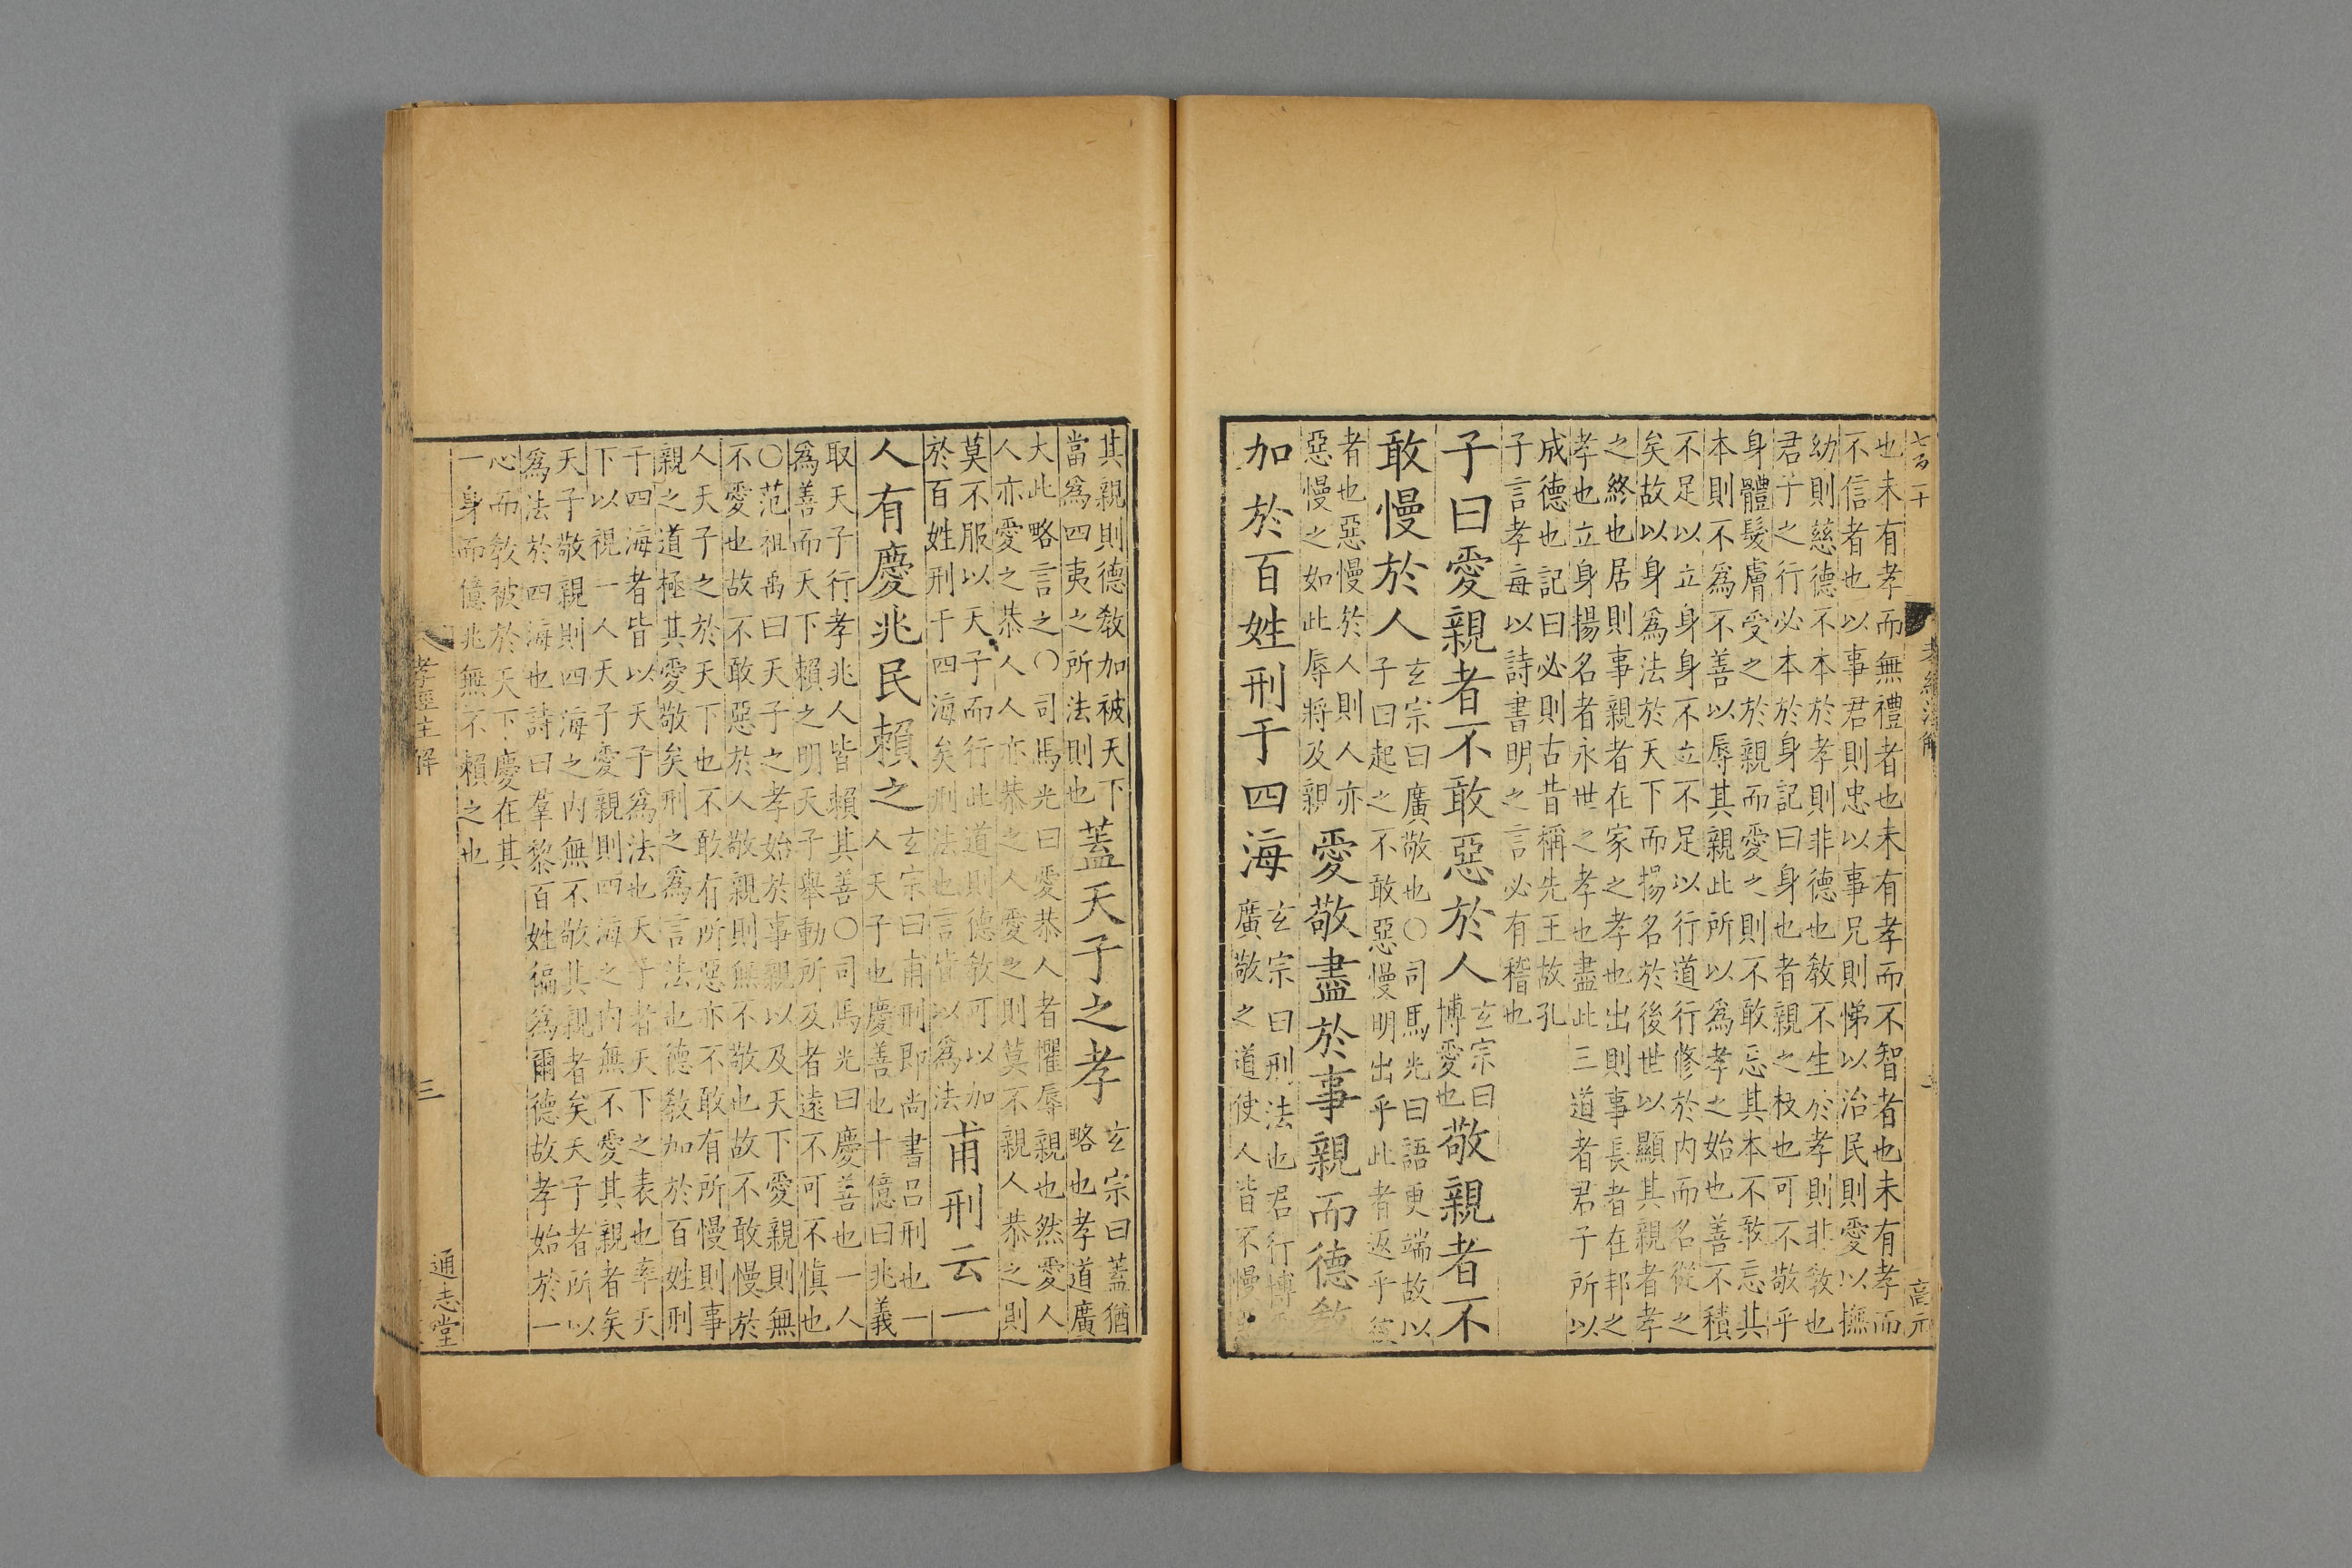 也未有孝而無禮者也未有孝而不智者也未有孝而
不信者也以事君則忠以事兄則悌以治民則愛以撫
幼則慈德不本於孝則非德也敎不生於孝則非敎也
君子之行必本於身記曰身也者親之枝也可不敬乎
身體髮膚受之於親而愛之則不敢忘其本不敢忘其
本則不爲不善以辱其親此所以爲孝之始也善不積
不足以立身身不立不足以行道行修於内而名從之
矣故以身爲法於天下而揚名於後世以顯其親者孝
之終也居則事親者在家之孝也出則事長者在邦之
孝也立身揚名者永世之孝也盡此三道者君子所以
成德也記曰必則古昔稱先王故孔
子言孝每以詩書明之言必有稽也
子曰愛親者不敢惡於人
玄宗曰
博愛也
敬親者不
敢慢於人
玄宗曰廣敬也○司馬光曰語更端故以
子曰起之不敢惡慢明出乎此者返乎彼
者也惡慢於人則人亦
惡慢之如此辱將及親
愛敬盡於事親而德敎
加於百姓刑于四海
玄宗曰刑法也君行博
廣敬之道使人皆不慢
高元
其親則德敎加被天下
當爲四夷之所法則也
蓋天子之孝
玄宗曰蓋猶
略也孝道廣
大此略言之○司馬光曰愛恭人者懼辱親也然愛人
人亦愛之恭人人亦恭之人愛之則莫不親人恭之則
莫不服以天子而行此道則德敎可以加
於百姓刑于四海矣刑法也言皆以爲法
甫刑云一
人有慶兆民賴之
玄宗曰甫刑即尚書呂刑也一
人天子也慶善也十億曰兆義
取天子行孝兆人皆賴其善○司馬光曰慶善也一人
爲善而天下賴之明天子舉動所及者遠不可不愼也
○范祖禹曰天子之孝始於事親以及天下愛親則無
不愛也故不敢惡於人敬親則無不敬也故不敢慢於
人天子之於天下也不敢有所惡亦不敢有所慢則事
親之道極其愛敬矣刑之爲言法也德敎加於百姓刑
于四海者皆以天子爲法也天子者天下之表也率天
下以視一人天子愛親則四海之内無不愛其親者矣
天子敬親則四海之内無不敬其親者矣天子者所以
爲法於四海也詩曰羣黎百姓徧爲爾德故孝始於一
心而敎被於天下慶在其
一身而億兆無不賴之也
孝經注解
三
通志堂